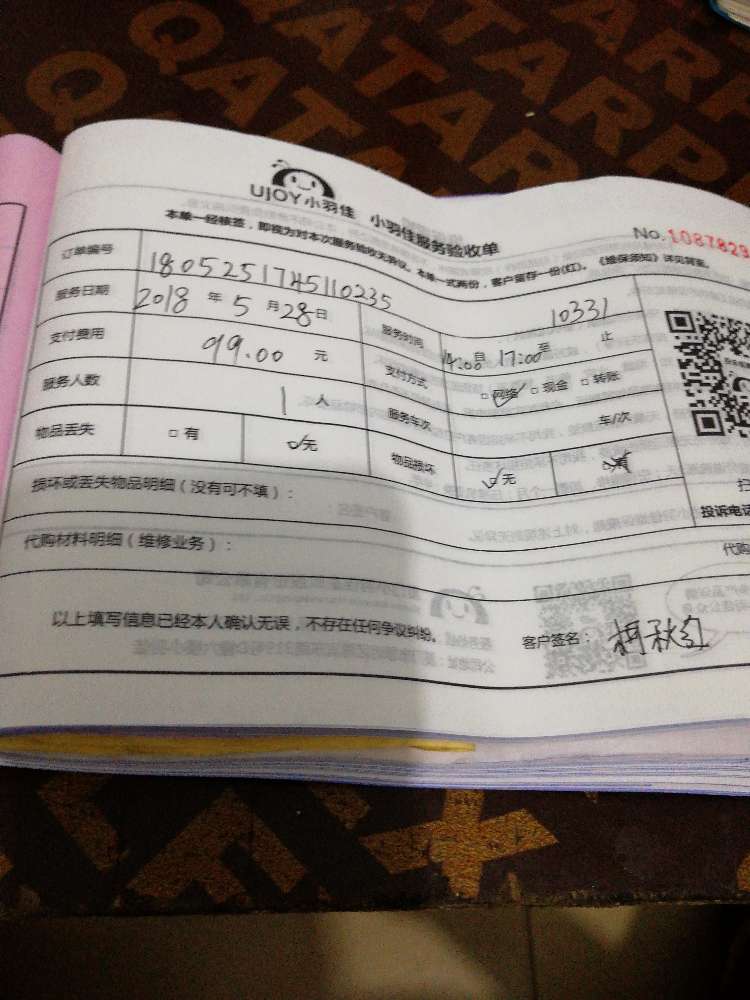 QATARP
QATARP
UJOY小羽佳 小羽佳服务验收单
本单一经核签，即视为对本次服务验收无异议。本单一式两份，客户留存一份(红)。《维保须知》详见背面。
No.1087829
订单编号 1805251745110235
10331
服务日期 2018 年 5 月 28 日 服务时间 14:00 自 17:00 至 止
支付费用 99.00 元 支付方式 □网络 □现金 □转账
服务人数 1 人 服务车次 车/次
物品丢失 □有 □无 物品损坏 □无 □有
损坏或丢失物品明细（没有可不填）：
投诉电话
代购材料明细（维修业务）：
代购
以上填写信息已经本人确认无误，不存在任何争议纠纷。 客户签名： 柯秋红